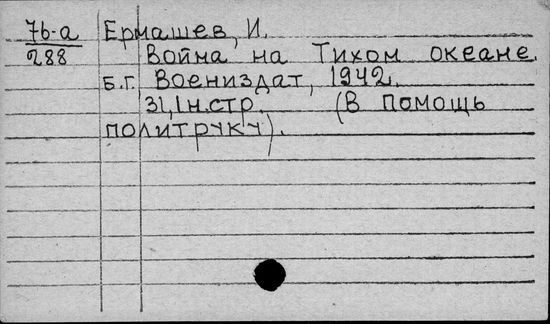 76-а Ермашев, И.
288 Война на Тихом океане.
Б.г. Воениздат, 1942.
31,1н.стр. (В помощь
политруку).